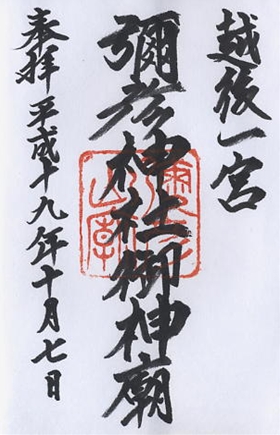 越後一宮
彌彦神社御神廟
奉拝 平成十九年十月七日